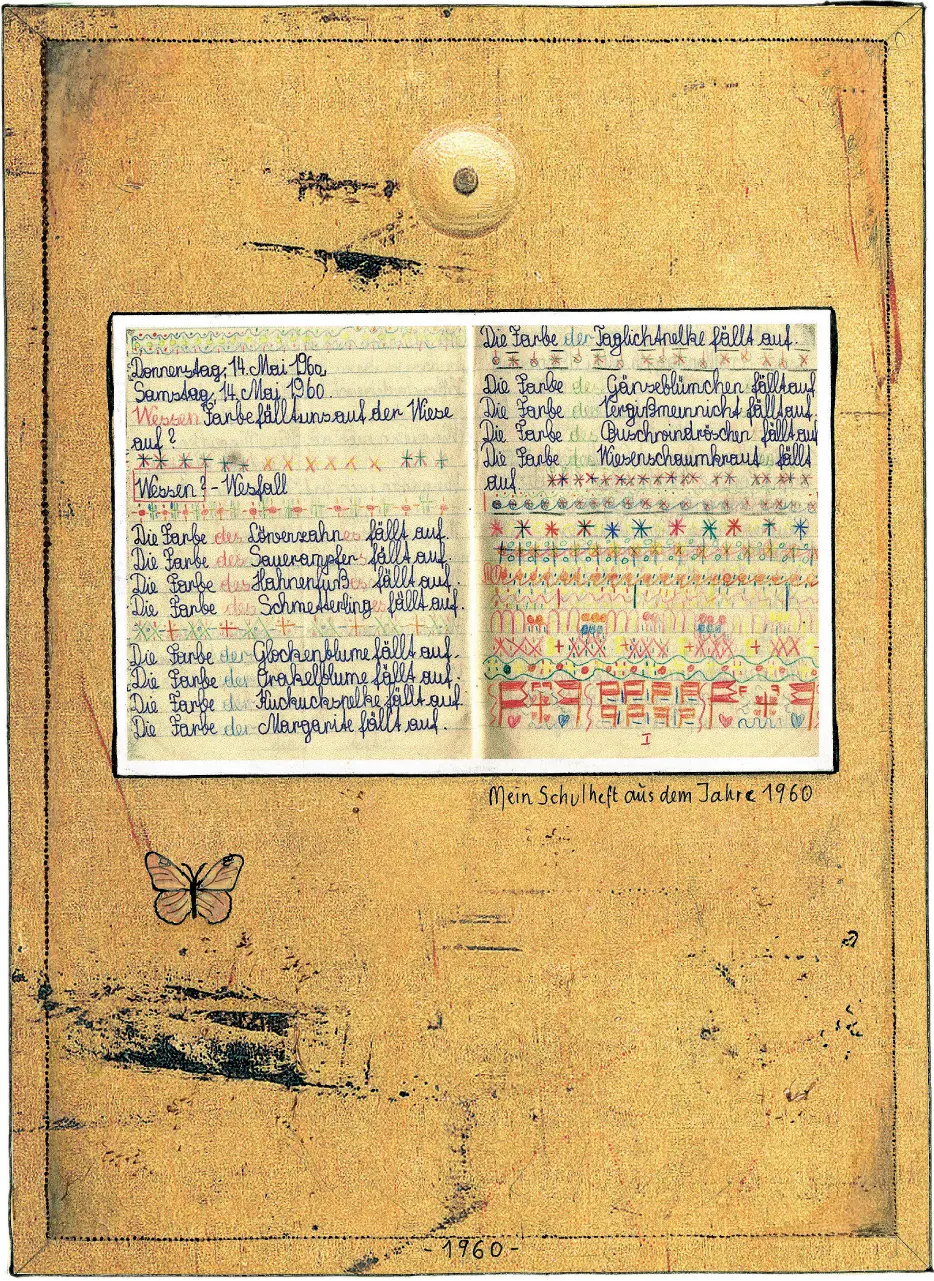 Donnerstag, 14. Mai 1960
Samstag, 14. Mai 1960.
Wessen Farbe fällt uns auf der Wiese
auf?
Wessen? - Wesfall
Die Farbe des Löwenzahnes fällt auf.
Die Farbe des Sauerampfers fällt auf.
Die Farbe des Hahnenfußes fällt auf.
Die Farbe des Schmetterlinges fällt auf.
Die Farbe der Glockenblume fällt auf.
Die Farbe der Orakelblume fällt auf.
Die Farbe der Kuckucksnelke fällt auf.
Die Farbe der Margarite fällt auf.
Die Farbe der Taglichtnelke fällt auf.
Die Farbe des Gänseblümchen fällt auf
Die Farbe des Vergißmeinnicht fällt auf.
Die Farbe des Buschwindröschen fällt auf
Die Farbe des Wiesenschaumkraut fällt
auf.
I
Mein Schulheft aus dem Jahre 1960
- 1960 -